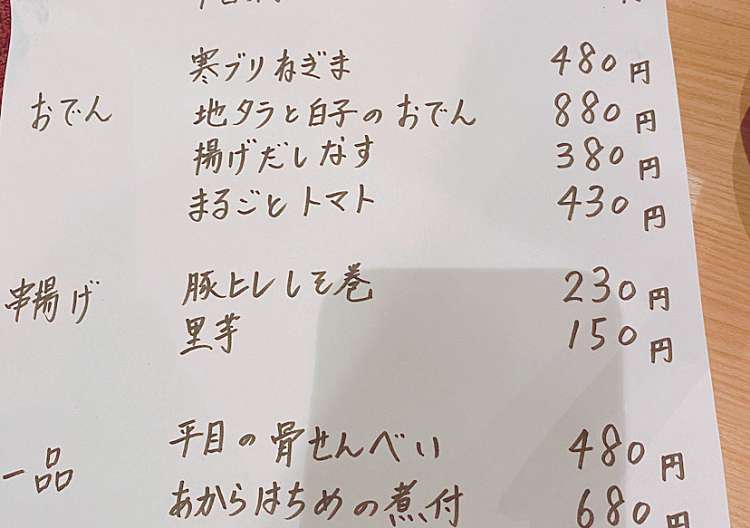 寒ブリねぎま 480円
おでん 地タラと白子のおでん 880円
揚げだしなす 380円
まるごとトマト 430円
串揚げ 豚ヒレしそ巻 230円
里芋 150円
一品 平目の骨せんべい 480円
あからばちめの煮付 680円